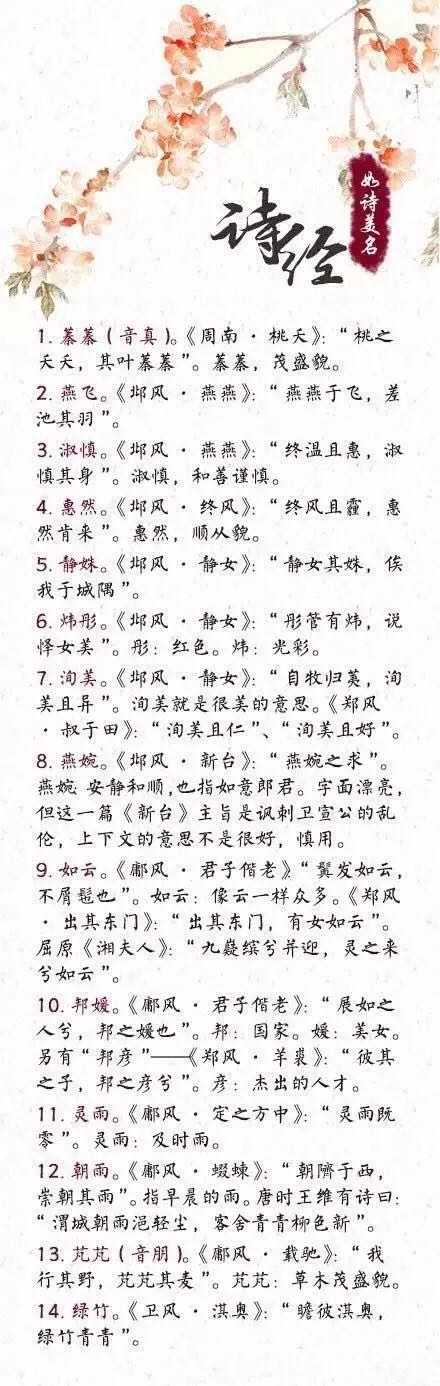 诗经
如诗美名
1. 蓁蓁（音真）。《周南·桃夭》：“桃之
夭夭，其叶蓁蓁”。蓁蓁，茂盛貌。
2. 燕飞。《邶风·燕燕》：“燕燕于飞，差
池其羽”。
3. 淑慎。《邶风·燕燕》：“终温且惠，淑
慎其身”。淑慎，和善谨慎。
4. 惠然。《邶风·终风》：“终风且霾，惠
然肯来”。惠然，顺从貌。
5. 静姝。《邶风·静女》：“静女其姝，俟
我于城隅”。
6. 炜彤。《邶风·静女》：“彤管有炜，说
怿女美”。彤：红色。炜：光彩。
7. 洵美。《邶风·静女》：“自牧归荑，洵
美且异”。洵美就是很美的意思。《郑风
·叔于田》：“洵美且仁”、“洵美且好”。
8. 燕婉。《邶风·新台》：“燕婉之求”。
燕婉 安静和顺，也指如意郎君。字面漂亮，
但这一篇《新台》主旨是讽刺卫宣公的乱
伦，上下文的意思不是很好，慎用。
9. 如云。《鄘风·君子偕老》“鬒发如云，
不屑髢也”。如云：像云一样众多。《郑风
·出其东门》：“出其东门，有女如云”。
屈原《湘夫人》：“九嶷缤兮并迎，灵之来
兮如云”。
10. 邦媛。《鄘风·君子偕老》：“展如之
人兮，邦之媛也”。邦：国家。媛：美女。
另有“邦彦”——《郑风·羊裘》：“彼其
之子，邦之彦兮”。彦：杰出的人才。
11. 灵雨。《鄘风·定之方中》：“灵雨既
零”。灵雨：及时雨。
12. 朝雨。《鄘风·蝃蝀》：“朝隮于西，
崇朝其雨”。指早晨的雨。唐时王维有诗曰：
“渭城朝雨浥轻尘，客舍青青柳色新”。
13. 芃芃（音朋）。《鄘风·载驰》：“我
行其野，芃芃其麦”。芃芃：草木茂盛貌。
14. 绿竹。《卫风·淇奥》：“瞻彼淇奥，
绿竹青青”。